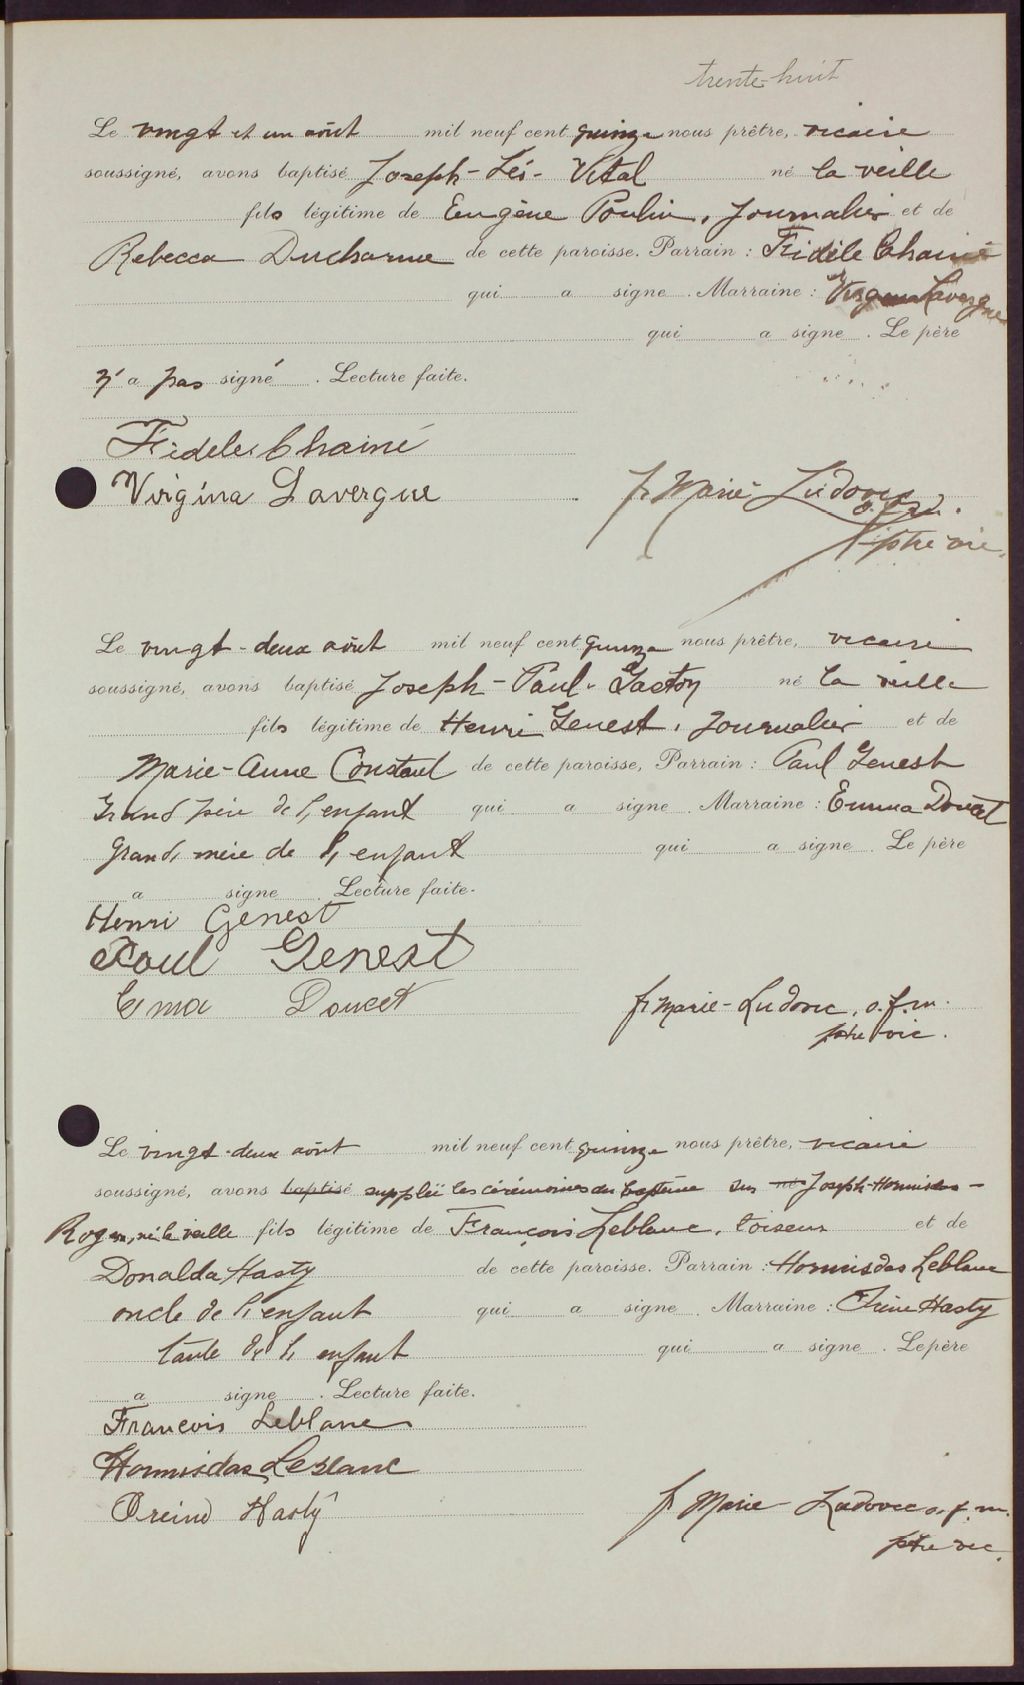 trente-huit
Le vingt et un août mil neuf cent quinze nous prêtre, vicaire
soussigné, avons baptisé Joseph-Léo-Vital né la veille
fils légitime de Eugène Poulin, Journalier et de
Rebecca Ducharme de cette paroisse. Parrain : Fidèle Chainé
qui a signe . Marraine : Virgina Lavergne
qui a signe . Le père
n'a pas signé . Lecture faite.
Fidele Chainé
Virgina Lavergne
fr Marie-Ludovic o.f.m.
ptre vic.
Le vingt-deux août mil neuf cent quinze nous prêtre, vicaire
soussigné, avons baptisé Joseph-Paul-Gaston né la veille
fils légitime de Henri Genest, Journalier et de
Marie-Anne de cette paroisse, Parrain : Paul Genest
Grand père de l'enfant qui a signe . Marraine : Emma Doucet
Grand, mère de l'enfant qui a signe . Le père
a signe . Lecture faite.
Henri Genest
Paul Genest
Ema Doucet
fr Marie-Ludovic, o.f.m.
ptre vic.
Le vingt-deux août mil neuf cent quinze nous prêtre, vicaire
soussigné, avons baptisé suppléé les cérémonies du baptême sur né Joseph-Hormisdas-
Roger, né la veille fils légitime de François Leblanc, toiseur et de
Donalda Hasty de cette paroisse. Parrain : Hormisdas Leblanc
oncle de l'enfant qui a signe . Marraine : Irène Hasty
tante de l'enfant qui a signe . Le père
a signe . Lecture faite.
Francois Leblanc
Hormisdas Leblanc
Hasty
fr Marie-Ludovic o.f.m.
ptre vic.